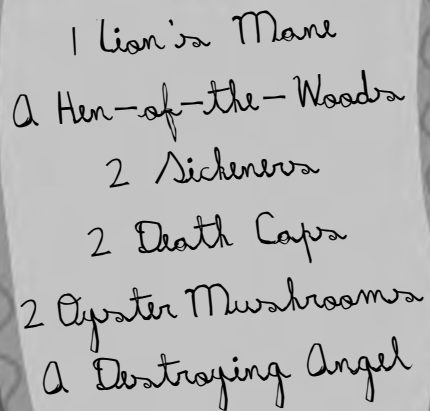 1 Lion's Mane
a Hen-of-the-Woods
2 Sickeners
2 Death Caps
2 Oyster Mushrooms
a Destroying Angel